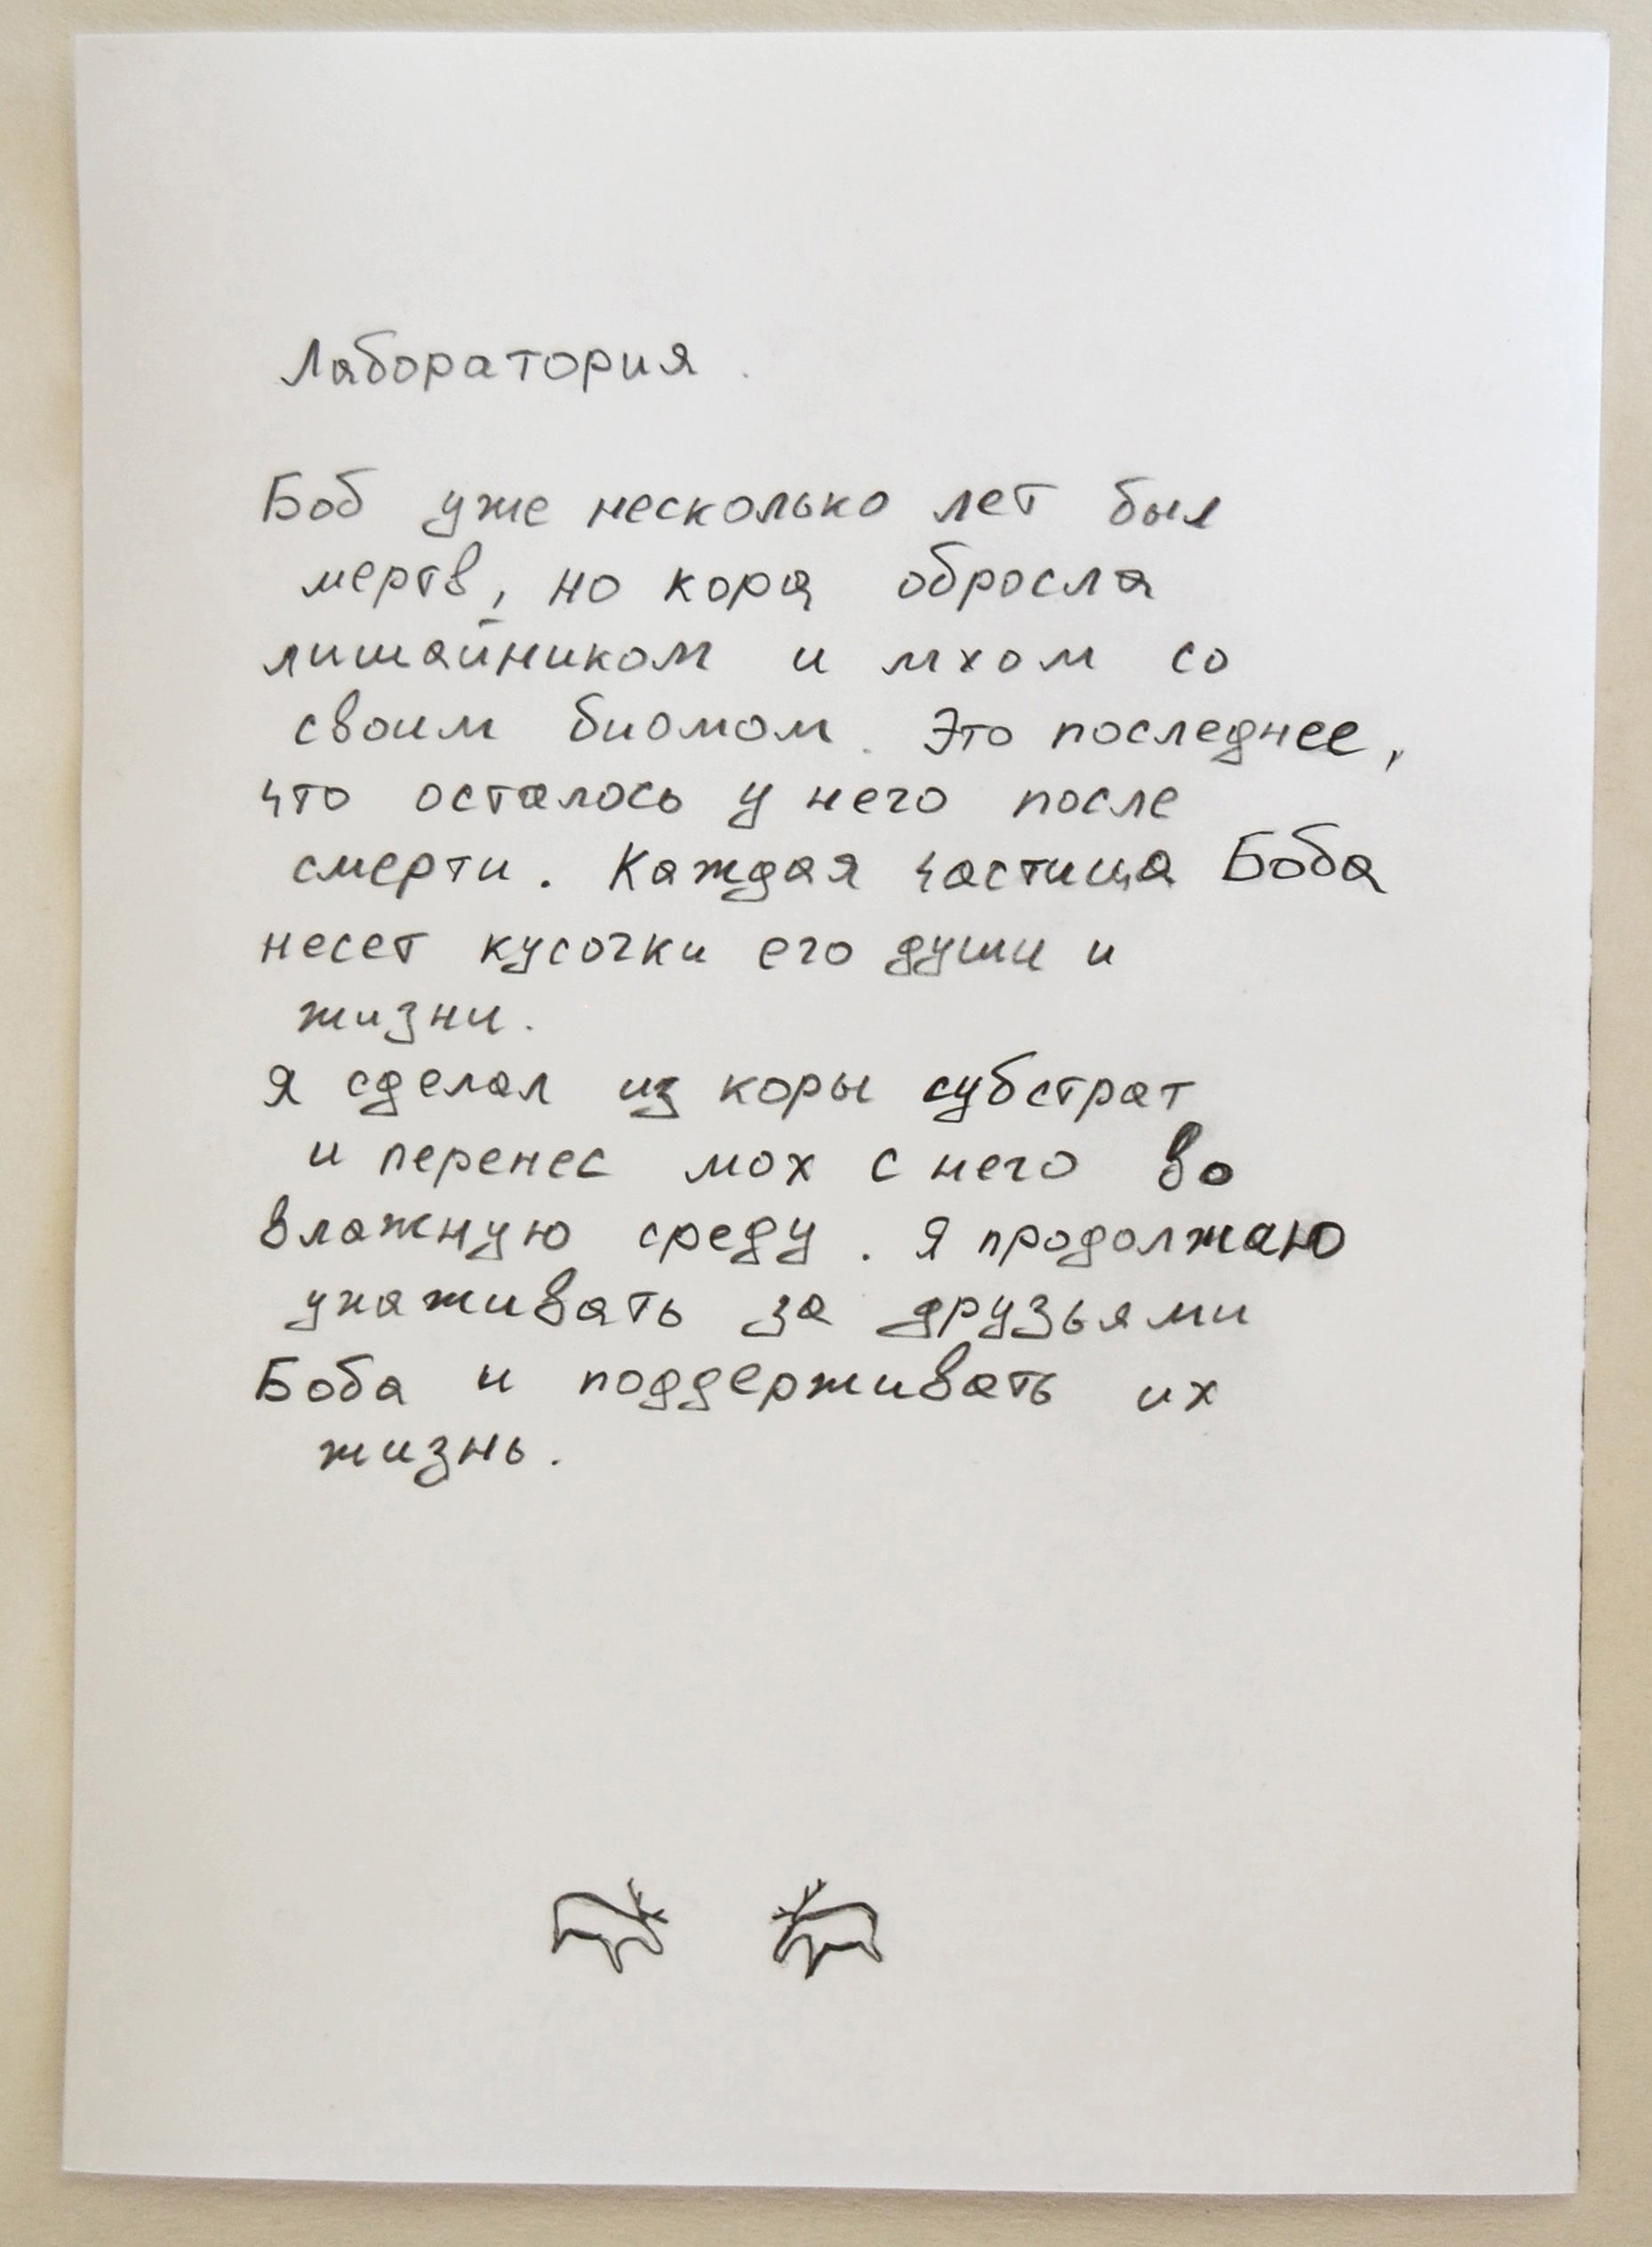 Лаборатория.
Боб уже несколько лет был
мертв, но кора обросла
лишайником и мхом со
своим биомом. Это последнее,
что осталось у него после
смерти. Каждая частица Боба
несет кусочки его души и
жизни.
Я сделал из коры субстрат
и перенес мох с него во
влажную среду. Я продолжаю
ухаживать за друзьями
Боба и поддерживать их
жизнь.